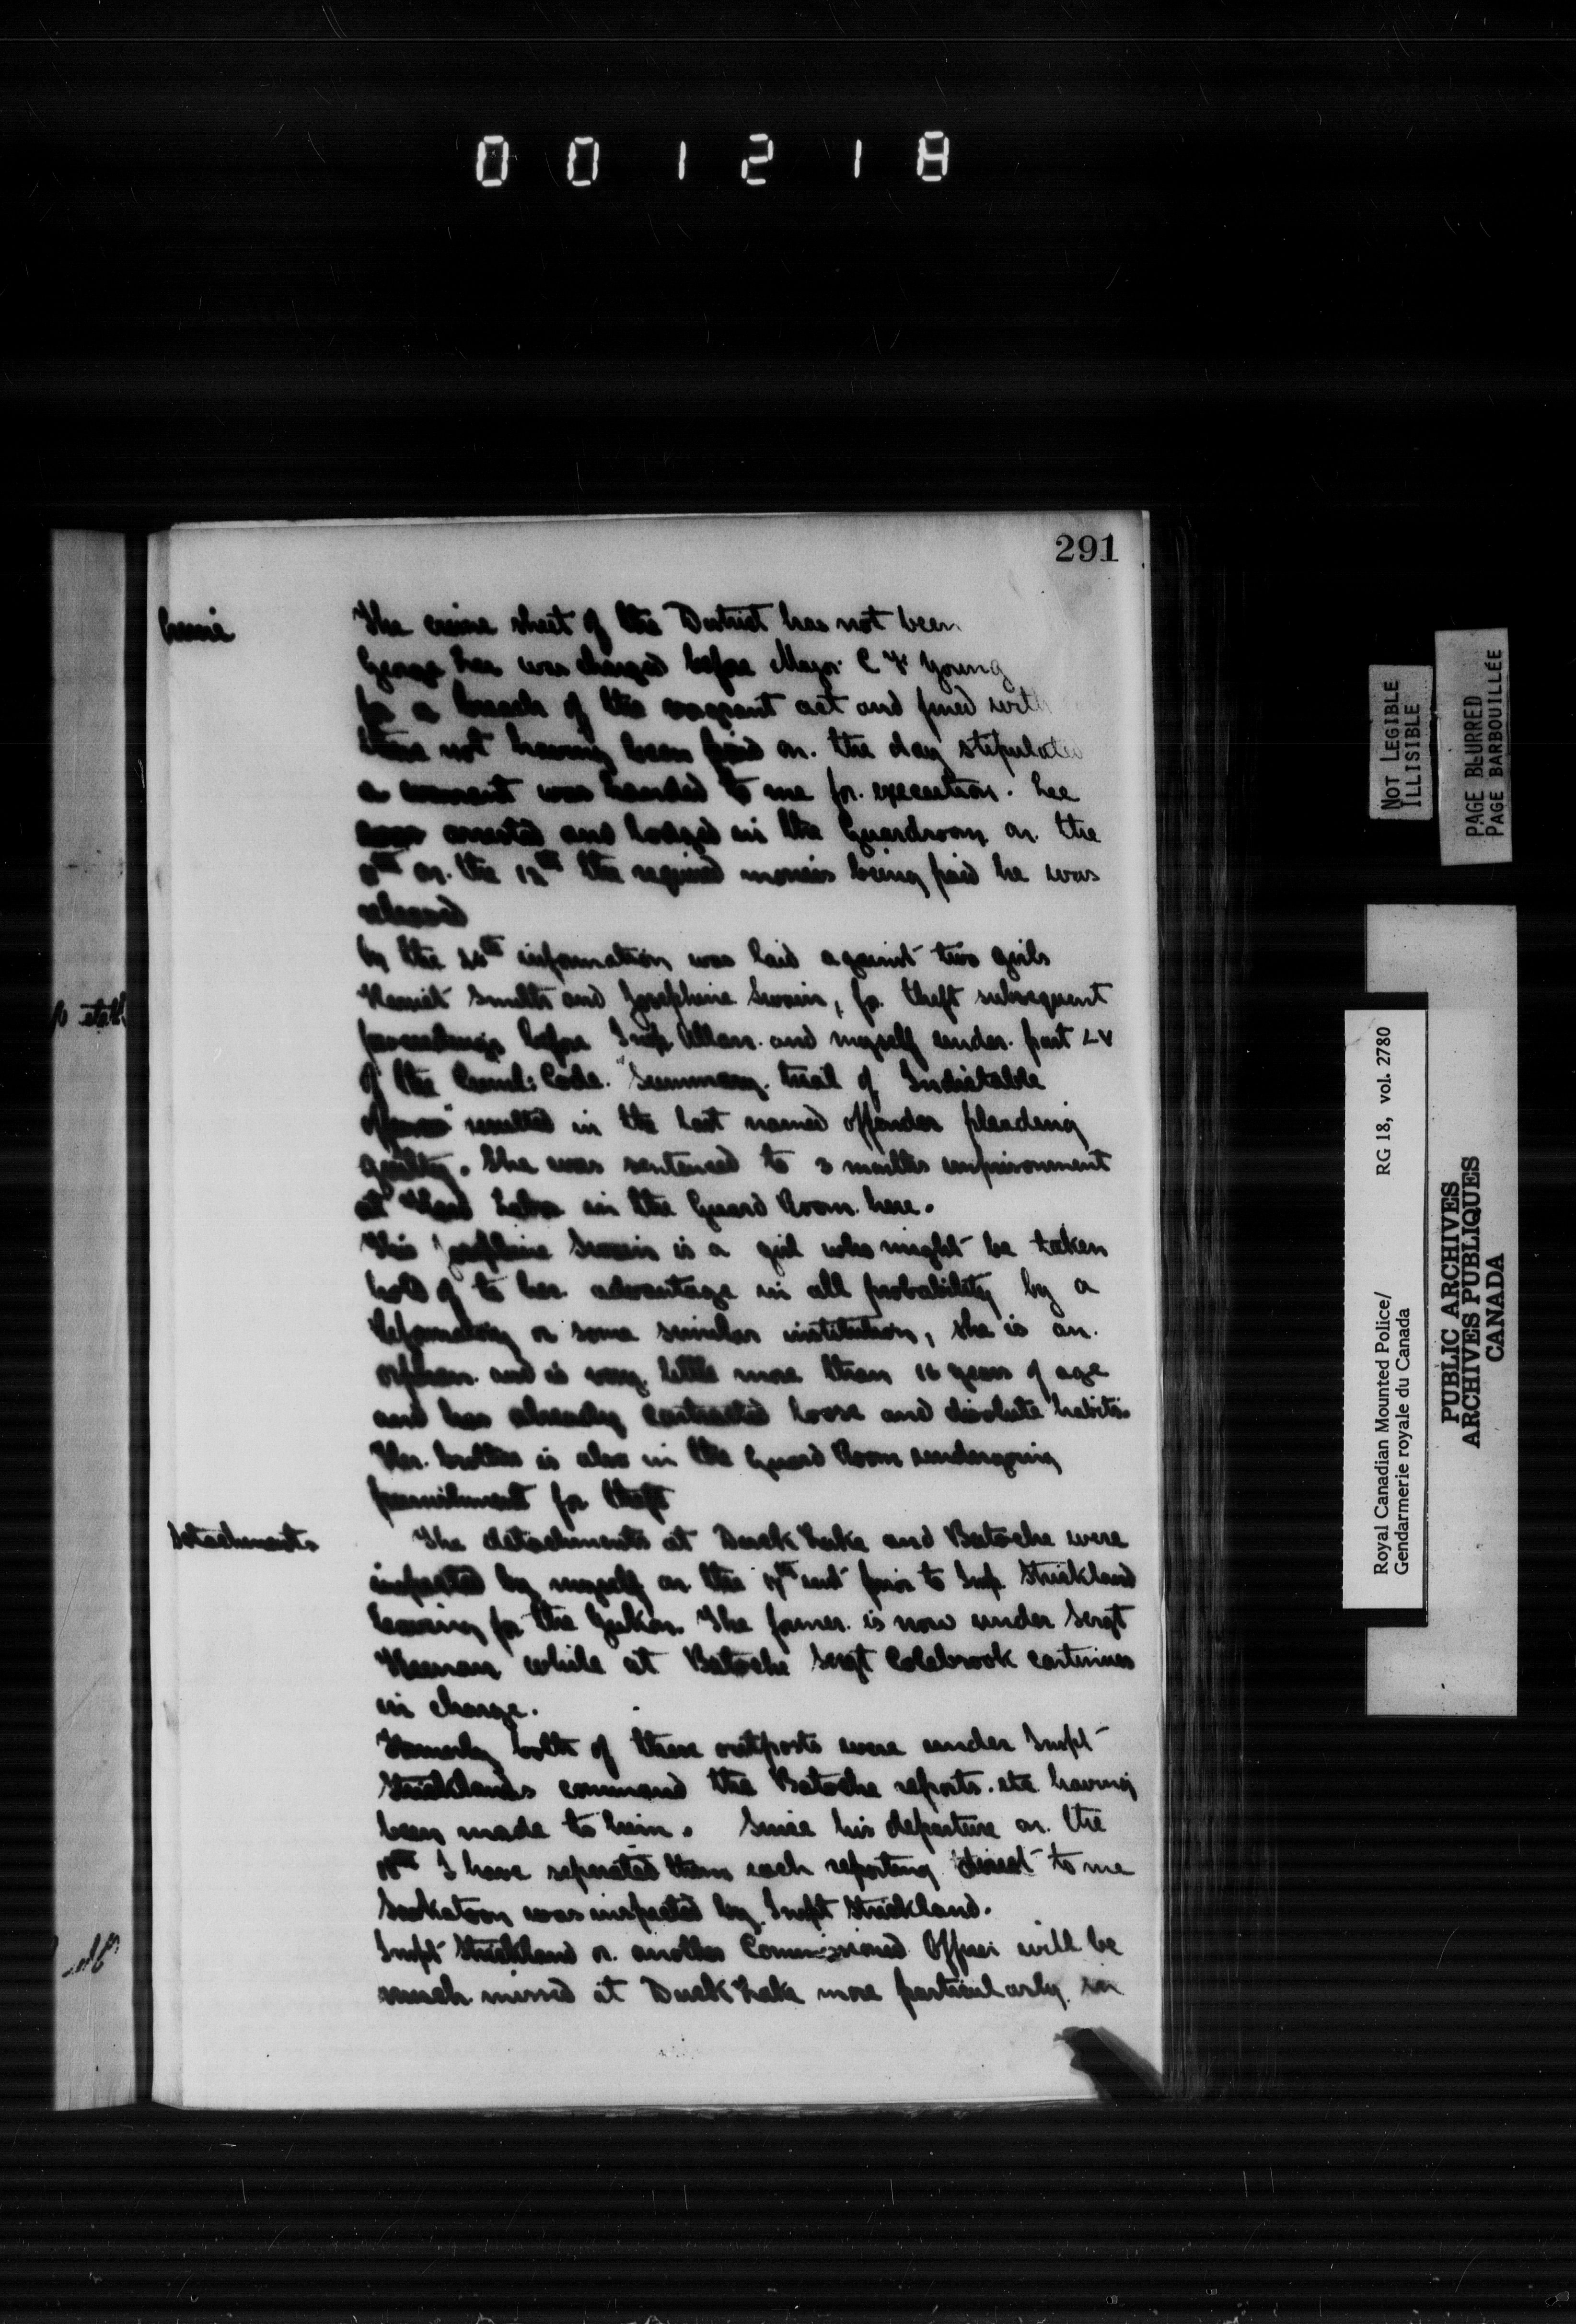 001218
291
Crime
The crime sheet of the District has not been
George Lee was charged before Major C F Young
for a breach of the vagrant act and fined with
these not having been paid on the day stipulated
a warrant was handed to me for execution. Lee
was arrested and lodged in the Guardroom on the
on the 12th the required monies being paid he was
released
the information was laid against two girls
Smith and Josephine Swain, for theft subsequent
proceedings before Insp Allan and myself under part LV
of the Criml: Code. "Summary trial of Indictable
offences" resulted in the last named offender pleading
guilty. She was sentenced to 3 months imprisonment
at Hard Labor in the Guard Room here.
This Josephine Swain is a girl who might be taken
hold of to her advantage in all probability by a
Reformatory or some similar institution, she is an
orphan and is very little more than 16 years of age
and has already contracted loose and disolute habits.
Her brother is also in the Guard Room undergoing
punishment for theft
Detachments
The detachments at Duck Lake and Batoche were
inspected by myself on the inst prior to Insp. Strickland
leaving for the Yukon. The former is now under Sergt
Keenan while at Batoche Sergt Colebrook continues
in charge.
Formerly both of these outposts were under Inspt
Stricklands command the Batoche reports. etc having
been made to him. Since his departure on the
I have separated them each reporting direct to me
Saskatoon was inspected by Inspt Strickland.
Inspt Strickland or another Commissioned Officer will be
much missed at Duck Lake more particularly in
NOT LEGIBLE
ILLISIBLE
PAGE BLURRED
PAGE BARBOUILLÉE
Royal Canadian Mounted Police/ RG 18, vol. 2780
Gendarmerie royale du Canada
PUBLIC ARCHIVES
ARCHIVES PUBLIQUES
CANADA